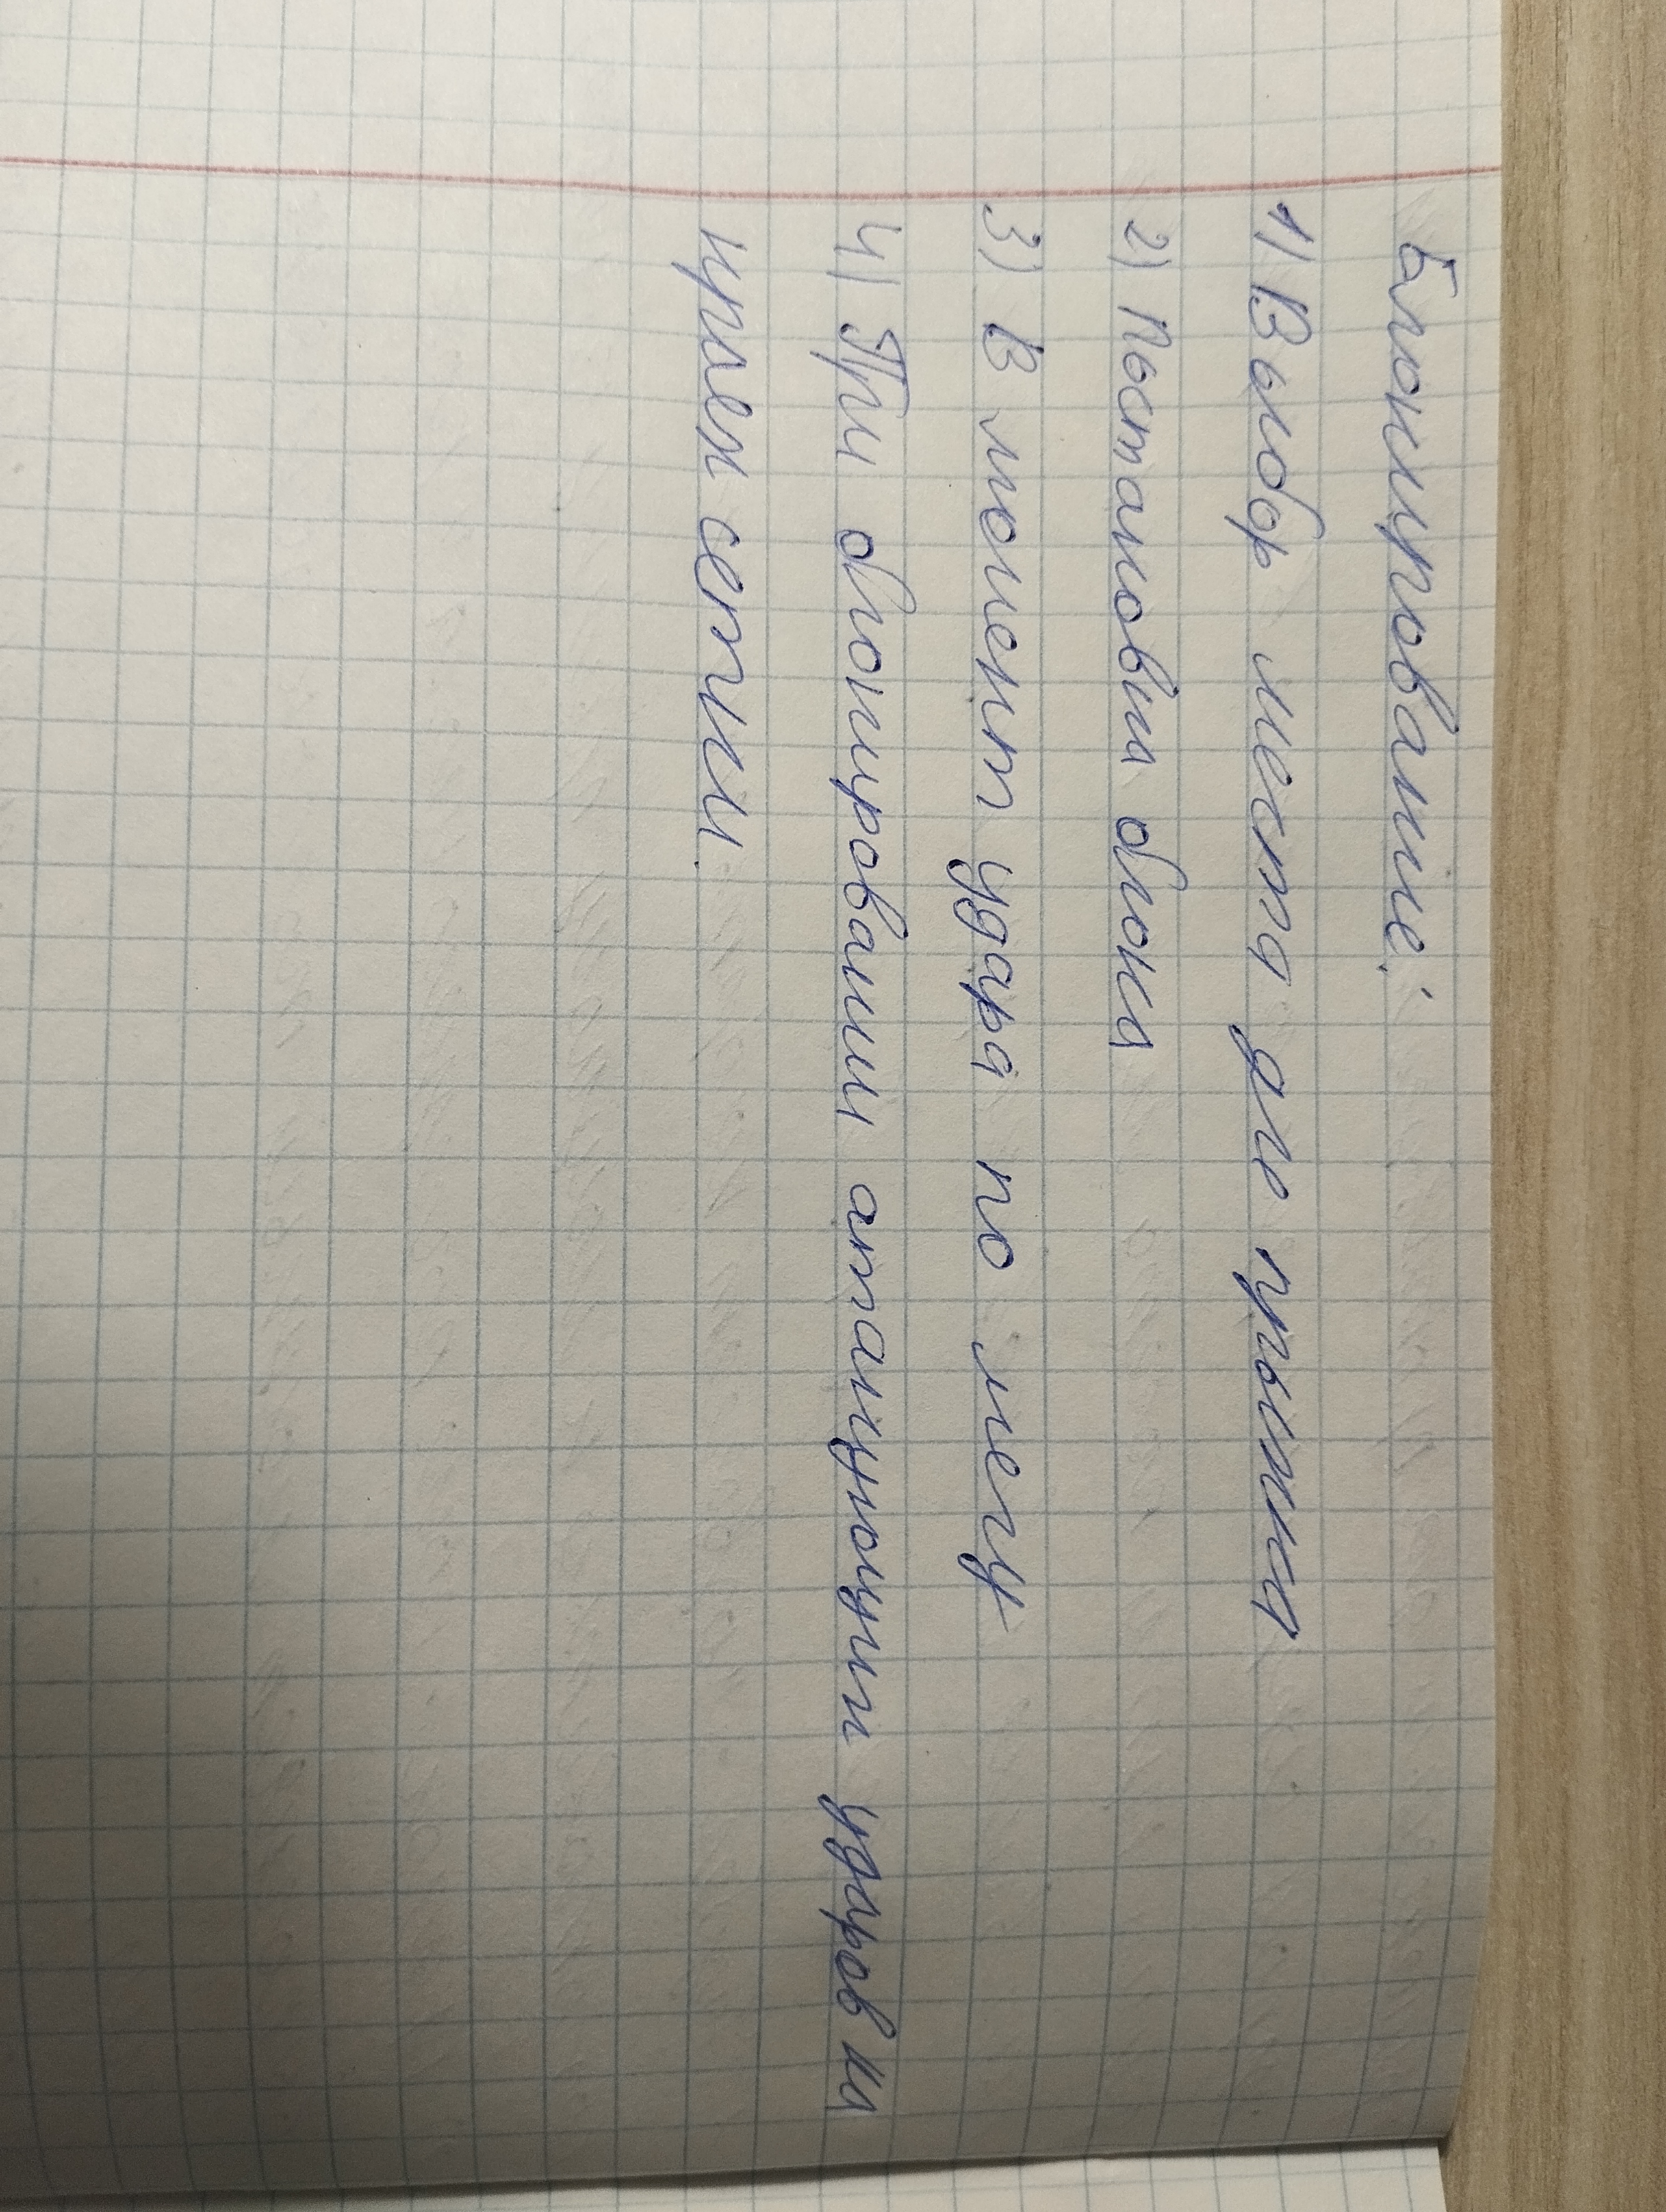 Блокирование:
1) Выбор места для прыжка
2) Постановки блока
3) В момент удара по мячу
4) При блокировании атакующими ударов на
краях сетки.